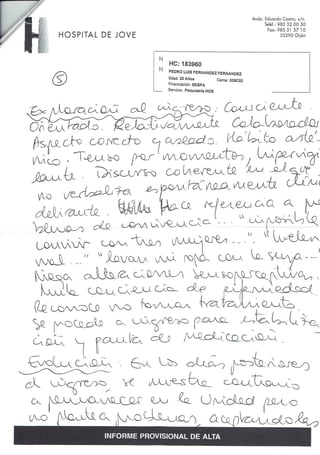 Avda. Eduardo Castro, s/n.
Teléf.: 985 32 00 50
Fax: 985 31 57 10
33290 Gijón
HOSPITAL DE JOVE
N HC: 183960
N PEDRO LUIS FERNANDEZ FERNANDEZ
Edad: 22 Años Cama: 009C02
Financiación: SESPA
Servicio: Psiquiatria NOS
5
Exploración al ingreso: Conciente.
Orientado. Relativamente Colaborador
Aspecto correcto y aseado. Hábito asté-
nico. Tenso por momentos, hipervigi
lante. Discurso coherente en el que
no verbaliza espontáneamente clínica
delirante. Hace referencia a pro
blemas de convivencia... "imposible
convivir con tres mujeres..." "huelen
mal..." "lavan mi ropa con la suya..."
Niega alteraciones sensoperceptivas.
Nula conciencia de enfermedad
Reconoce no tomar tratamiento.
Se procede a ingreso para estabiliza
ción y pauta de medicación.
Evolución: En los días posteriores
al ingreso, se muestra contrario
a permanecer en la Unidad pero
no plantea problemas, aceptando las
INFORME PROVISIONAL DE ALTA